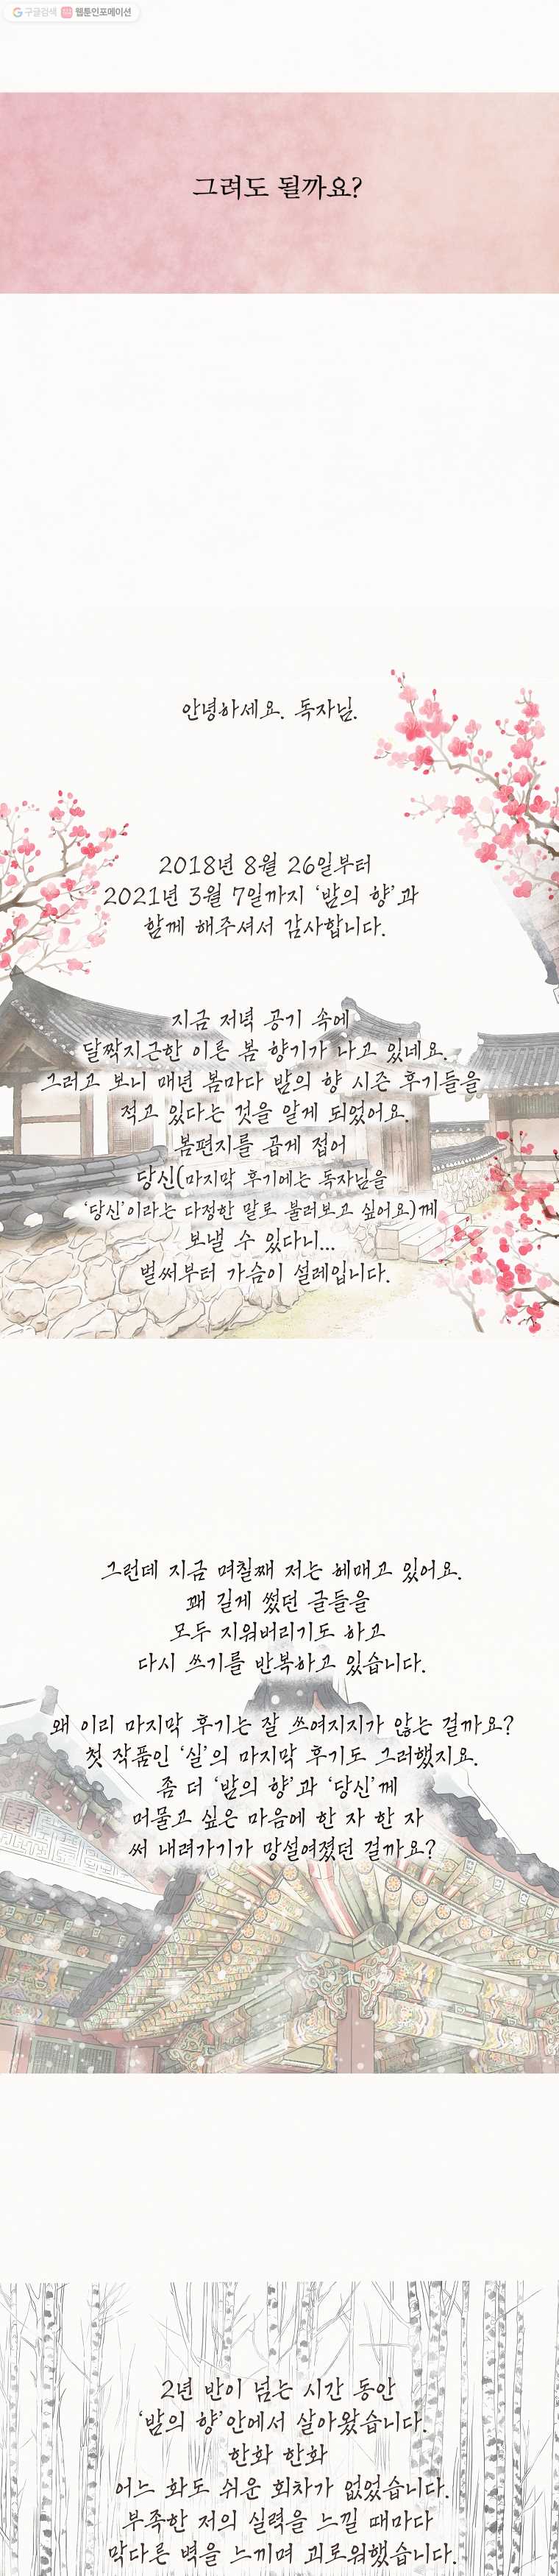 구글검색 웹툰인포메이션
그려도 될까요?
안녕하세요. 독자님.
2018년 8월 26일부터
2021년 3월 7일까지 ‘밤의 향’과
함께 해주셔서 감사합니다.
지금 저녁 공기 속에
달짝지근한 이른 봄 향기가 나고 있네요.
그러고 보니 매년 봄마다 밤의 향 시즌 후기들을
적고 있다는 것을 알게 되었어요.
봄편지를 곱게 접어
당신(마지막 후기에는 독자님을
‘당신’이라는 다정한 말로 불러보고 싶어요)께
보낼 수 있다니...
벌써부터 가슴이 설레입니다.
그런데 지금 며칠째 저는 헤매고 있어요.
꽤 길게 썼던 글들을
모두 지워버리기도 하고
다시 쓰기를 반복하고 있습니다.
왜 이리 마지막 후기는 잘 쓰여지지가 않는 걸까요?
첫 작품인 ‘실’의 마지막 후기도 그러했지요.
좀 더 ‘밤의 향’과 ‘당신’께
머물고 싶은 마음에 한 자 한 자
써 내려가기가 망설여졌던 걸까요?
2년 반이 넘는 시간 동안
‘밤의 향’안에서 살아왔습니다.
한화 한화
어느 화도 쉬운 회차가 없었습니다.
부족한 저의 실력을 느낄 때마다
막다른 벽을 느끼며 괴로워했습니다.